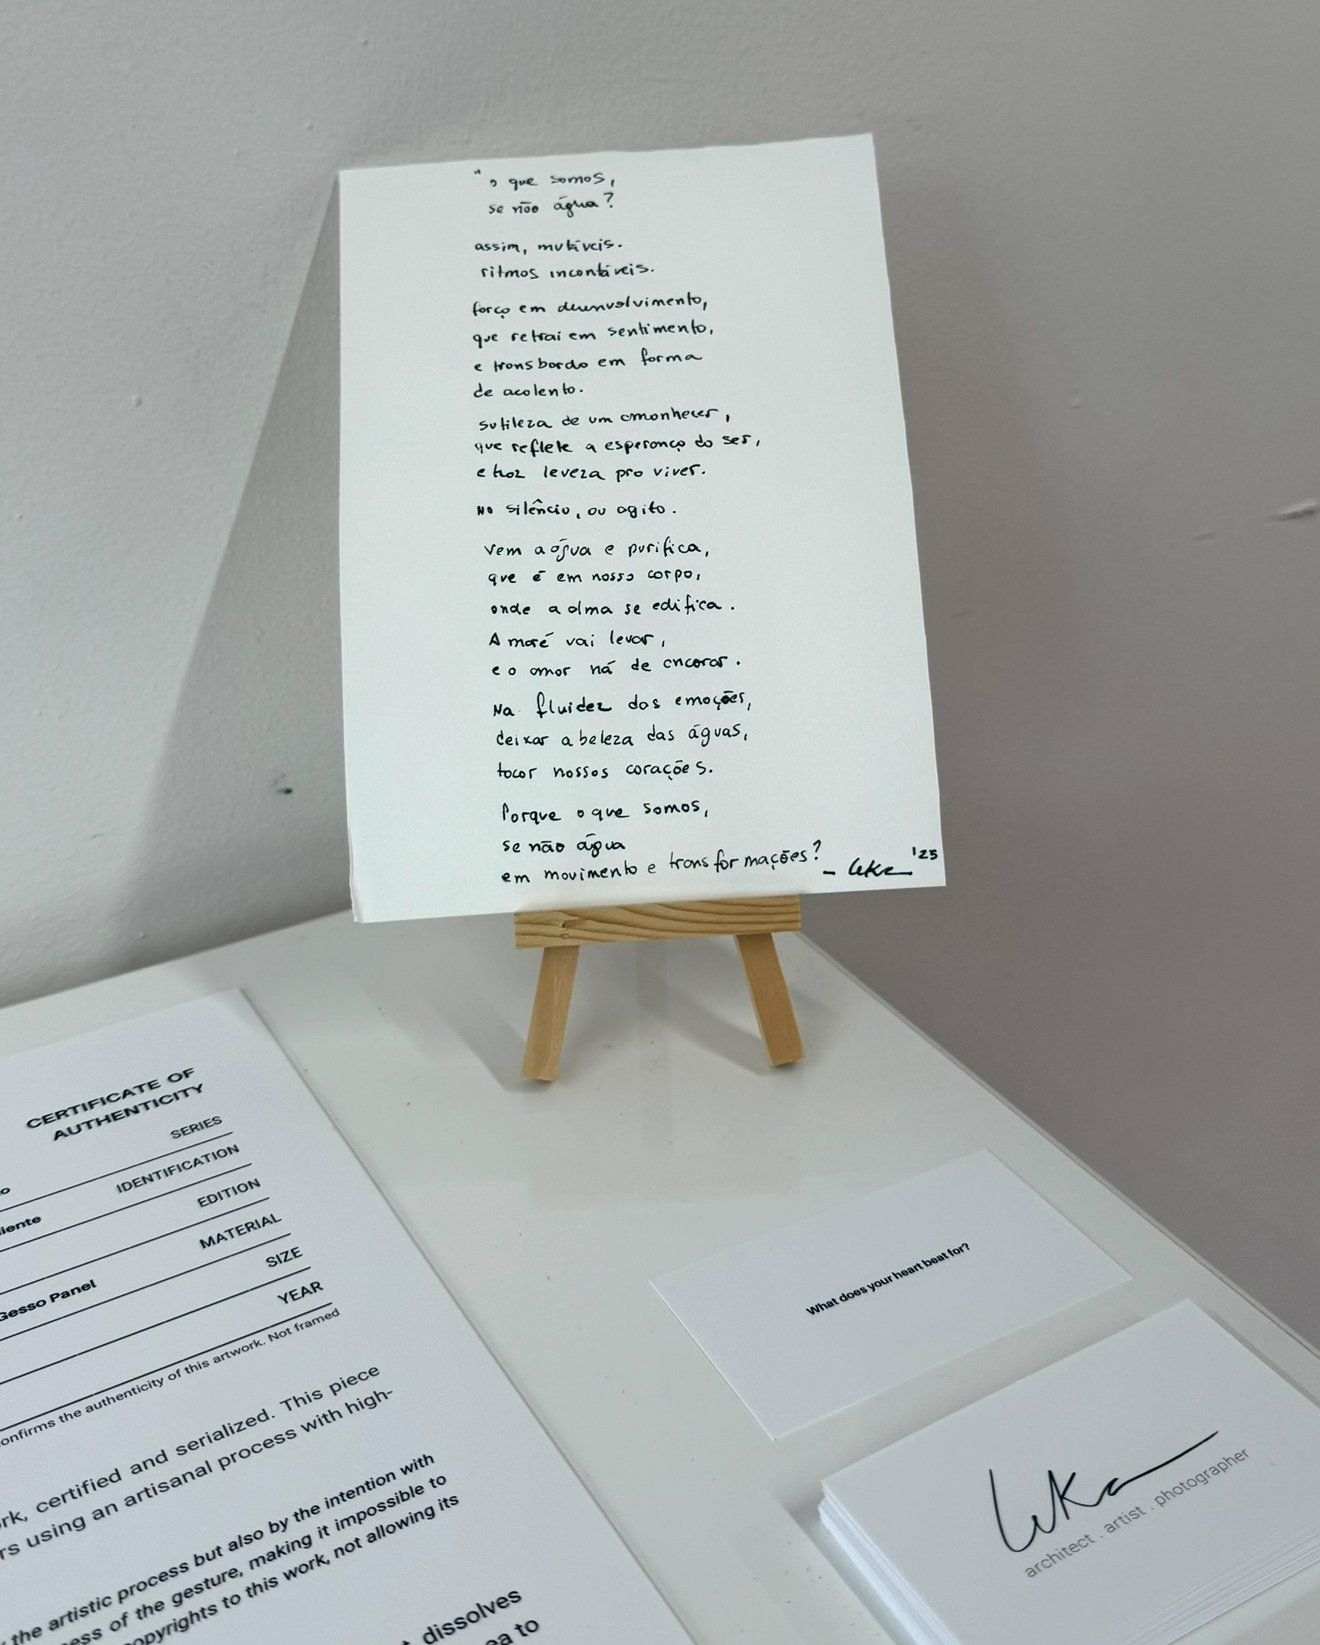 " o que somos,
se não água?
assim, mutáveis.
ritmos incontáveis.
força em desenvolvimento,
que retrai em sentimento,
e transborda em forma
de acalento.
sutileza de um amanhecer,
que reflete a esperança do ser,
e traz leveza pro viver.
No silêncio, ou agito.
Vem a água e purifica,
que é em nosso corpo,
onde a alma se edifica.
A maré vai levar,
e o amor há de ancorar.
Na fluidez das emoções,
deixar a beleza das águas,
tocar nossos corações.
Porque o que somos,
se não água
em movimento e transformações? _ LuKa '25
CERTIFICATE OF
AUTHENTICITY
SERIES
IDENTIFICATION
EDITION
MATERIAL
Gesso Panel
SIZE
YEAR
the authenticity of this artwork. Not framed
certified and serialized. This piece
using an artisanal process with high-
the artistic process but also by the intention with
of the gesture, making it impossible to
to this work, not allowing its
dissolves
to
What does your heart beat for?
LuKa
architect . artist . photographer